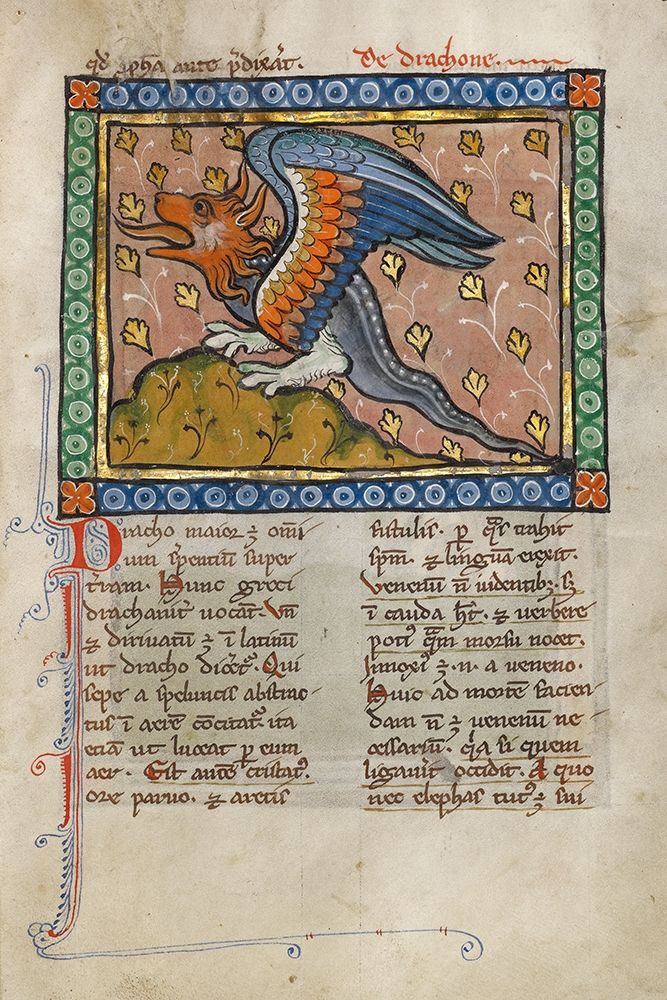 qđ ꝓpħa ante p̄dixāt.
De drachone.
Dracho maior ē omī
um s̄pentiū super
t̄ram. Hunc greci
drachanū uocāt. Vn̄
⁊ diriuatū ē ī latinū
ut dracho dicēt᷑. Qui
sepe a speluncis abstrac
tus ī aerem cōcitat᷑. ita
etiam ut luceat ꝑ eum
aer. Est autē cristatꝰ.
ore paruo. ⁊ artis
fistulis. ꝑ q̄s trahit
spm̄. ⁊ linguam exerit.
Venenū n̄ ī dentibꝫ. sꝫ
ī cauda ħt. ⁊ uerbere
potiꝰ q̄m morsu nocet.
Innoxiꝰ ē .n. a ueneno.
Huic ad mortē facien
dam n̄ ē uenenū ne
cessariū. q̄a si quem
ligauīt occidit. A quo
nec elephas tutꝰ ē sui